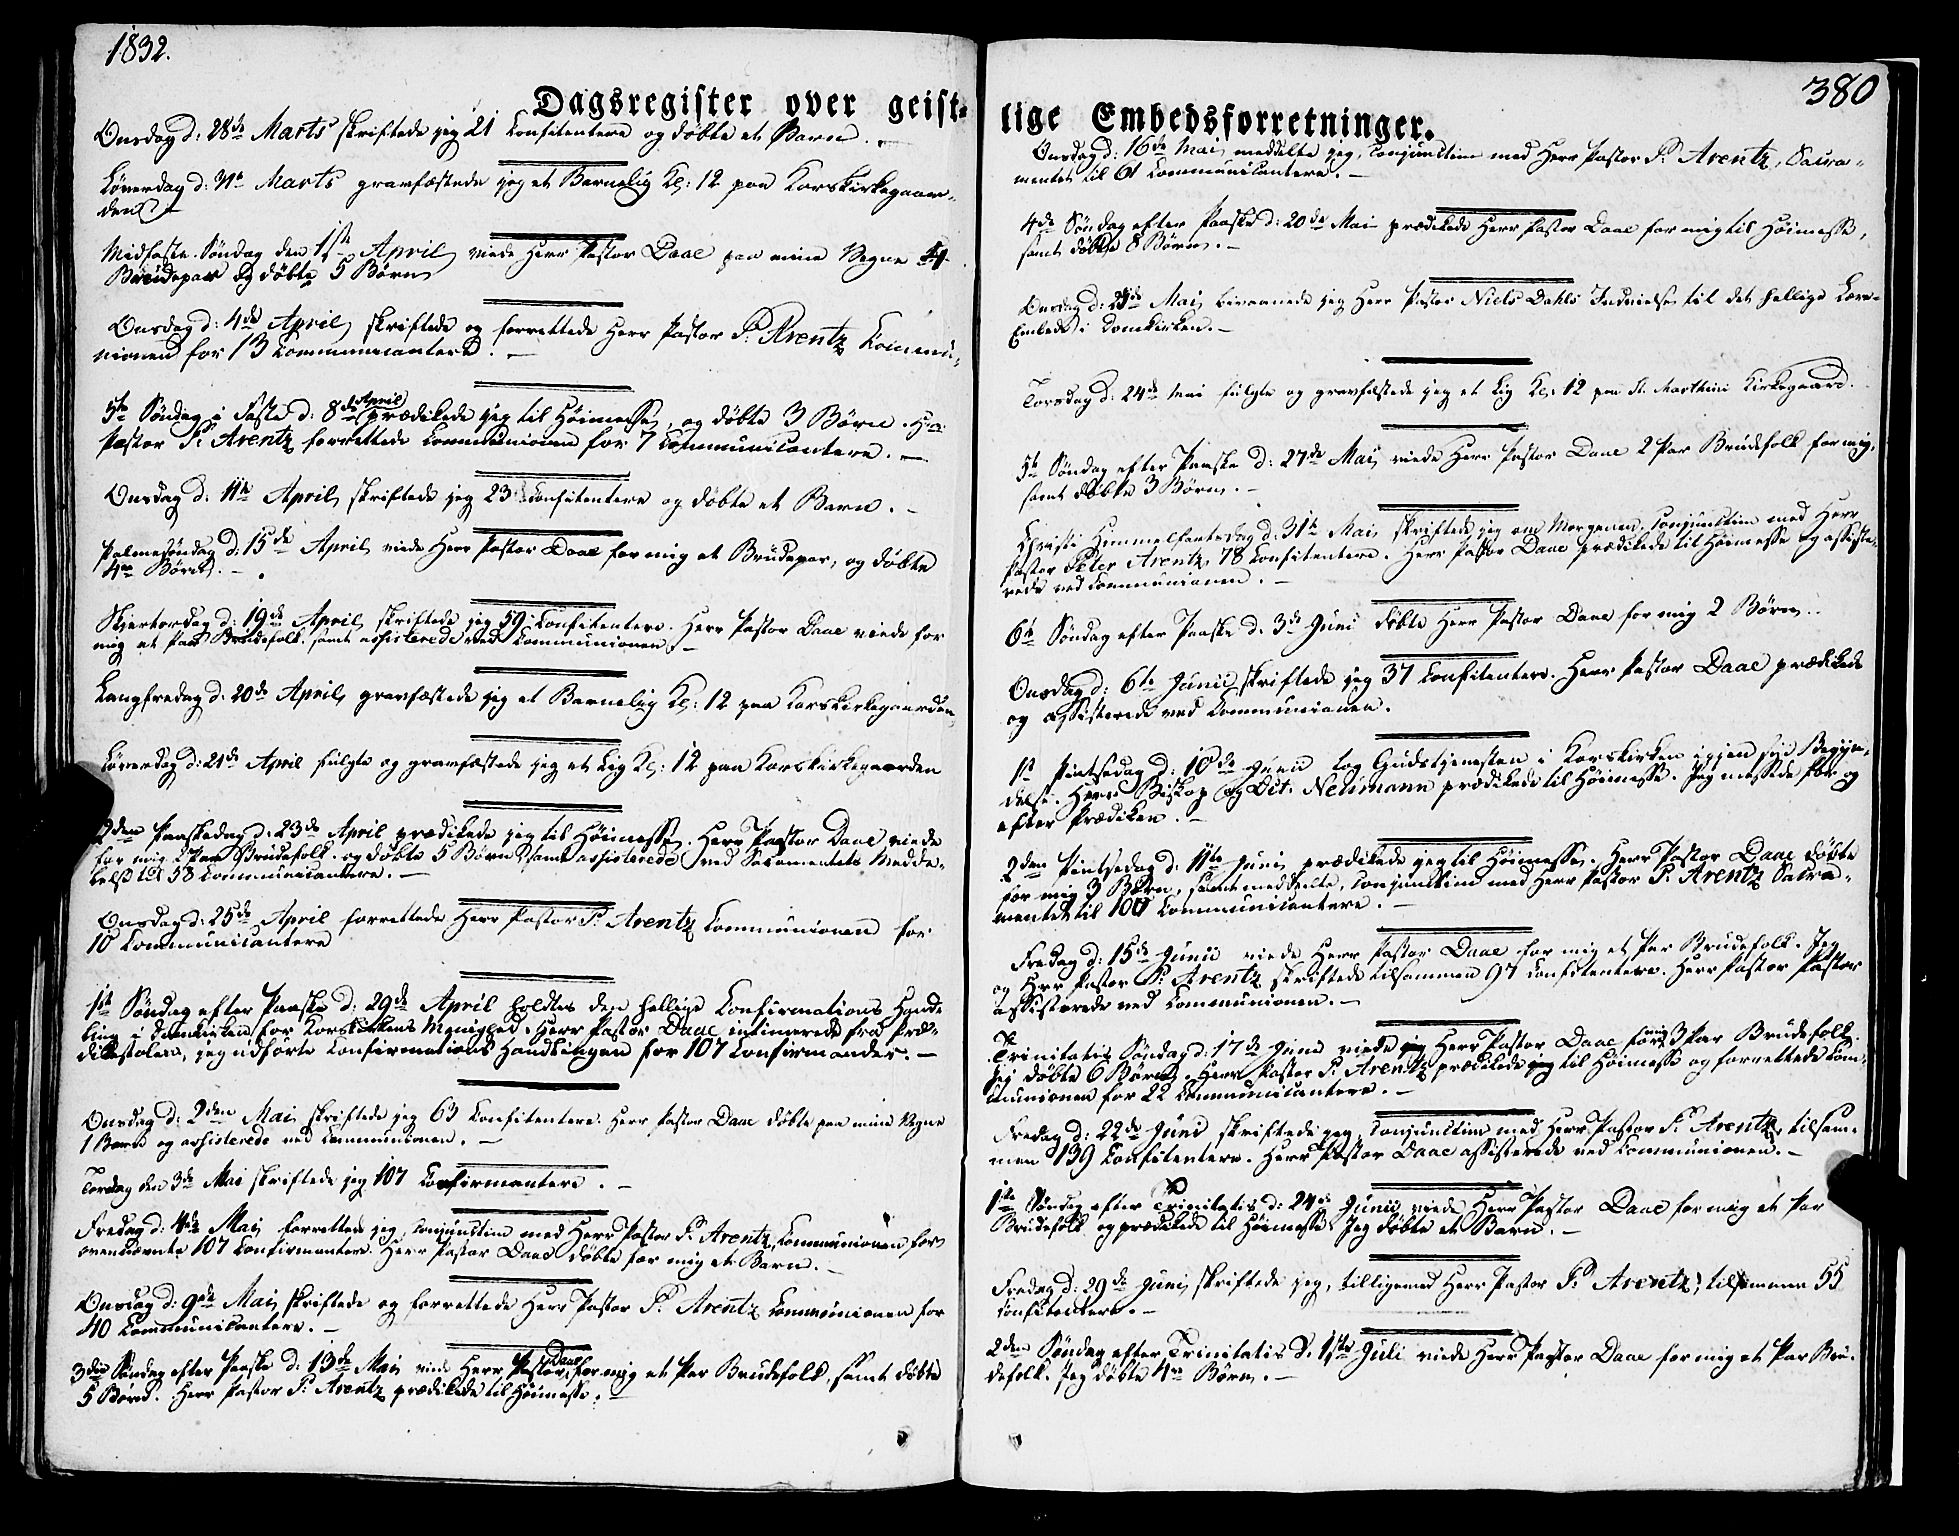 1832.
Dagsregister over geist-
Onsdag d: 28de Marts skriftede jeg 21 Confitentere og døbte et Barn.
Løverdag d: 31te Marts gravfæstede jeg et Barnelig Kl: 12 paa Korskirkegaar-
den.
Midfaste Søndag den 1ste April viede Herr Pastor Daae paa mine Vegne
Brudepar og døbte 5 Børn
Onsdag d: 4de April skriftede og forrettede Herr Pastor P: Arentz Commu-
nionen for 13 Communicantere.
5te Søndag i Faste d: 8de April prædikede jeg til Høimesse, og døbte 3 Børn. Hr:
Pastor P: Arentz forrettede Communionen for 7 Communicantere.
Onsdag d: 11te April skriftede jeg 23 Confitentere og døbte et Barn.
Palmesøndag d: 15de April viede Herr Pastor Daae for mig et Brudepar, og døbte
4re Børn.
Skjertorsdag d: 19de April skriftede jeg 59 Confitentere. Herr Pastor Daae viede for
mig et Par Brudefolk samt assisterede ved Communionen.
Langfredag d: 20de April gravfæstede jeg et Barnelig Kl: 12 paa Korskirkegaarden
Løverdag d: 21de April fulgte og gravfæstede jeg et Lig Kl: 12 paa Korskirkegaarden
2den Paaskedag d: 23de April prædikede jeg til Høimesse. Herr Pastor Daae viede
for mig 2 Par Brudefolk og døbte 5 Børn samt assisterede ved Sacramentets Medde-
lelse til 58 Communicantere.
Onsdag d: 25de April forrettede Herr Pastor P: Arentz Communionen for
10 Communicantere
1ste Søndag efter Paaske d: 29de April holdtes den hellige Confirmations Hand-
ling i Domkirken for Korskirkens Menighed. Herr Pastor Daae intimerede fra Præ-
dikestolen, jeg udførte Confirmations Handlingen for 107 Confirmander.
Onsdag d: 2den Mai skriftede jeg 63 Confitentere. Herr Pastor Daae døbte paa mine Vegne
1 Barn og assisterede ved Communionen.
Torsdag den 3de Mai skriftede jeg 107 Confirmantere.
Fredag d: 4de Mai forrettede jeg conjunctim med Herr Pastor P: Arentz, Communionen for
ovennævnte 107 Confirmantere. Herr Pastor Daae døbte for mig et Barn.
Onsdag d: 9de Mai skriftede og forrettede Herr Pastor P: Arentz Communionen for
40 Communicantere.
3die Søndag efter Paaske d: 13de Mai viede Herr Pastor Daae for mig et Par Brudefolk, samt døbte
5 Børn. Herr Pastor P: Arentz prædikede til Høimesse.
380
lige Embedsforretninger.
Onsdag d: 16de Mai meddelte jeg, conjunctim med Herr Pastor P: Arentz, Sacra-
mentet til 61 Communicantere.
4de Søndag efter Paaske d: 20de Mai prædikede Herr Pastor Daae for mig til Høimesse,
samt døbte 8 Børn.
Onsdag d: 23de Mai bivaanede jeg Herr Pastor Niels Dahls Indvielse til det hellige Lære-
Embede i Domkirken.
Torsdag d: 24de Mai fulgte og gravfæstede jeg et Lig Kl: 12 paa St. Marthini Kirkegaard.
5te Søndag efter Paaske d: 27de Mai viede Herr Pastor Daae 2 Par Brudefolk for mig,
samt døbte 3 Børn.
Christi Himmelfartsdag d: 31te Mai skriftede jeg om Morgenen, conjunctim med Herr
Pastor Peter Arentz, 78 Confitentere. Herr Pastor Daae prædikede til Høimesse og assiste-
rede ved Communionen.
6te Søndag efter Paaske d: 3de Juni døbte Herr Pastor Daae for mig 2 Børn.
Onsdag d: 6te Junii skriftede jeg 37 Confitentere. Herr Pastor Daae prædikede
og assisterede ved Communionen.
1ste Pintsedag d: 10de Junii tog Gudstjenesten i Korskirken igjen sin Begyn-
delse. Herr Biskop Neumann prædikede til Høimesse. Jeg messede før og
efter Prædiken.
2den Pintsedag d: 11te Juni prædikede jeg til Høimesse. Herr Pastor Daae døbte
for mig 3 Børn, samt meddeelte, conjunctim med Herr Pastor P: Arentz Sacra-
mentet til 100 Communicantere.
Fredag d: 15de Junii viede Herr Pastor Daae for mig et Par Brudefolk. Jeg
og Herr Pastor P: Arentz skriftede tilsammen 97 Confitentere. Herr Pastor Pastor
assisterede ved Communionen.
Trinitatis Søndag d: 17de Juni viede Herr Pastor Daae for mig 3 Par Brudefolk.
Jeg døbte 6 Børn. Herr Pastor P: Arentz prædikede til Høimesse og forrettede Com-
munionen for 22 Communicantere.
Fredag d: 22de Juni skriftede jeg conjunctim med Herr Pastor P: Arentz, tilsam-
men 139 Confitentere. Herr Pastor Daae assisterede ved Communionen.
1ste Søndag efter Trinitatis d: 24de Junii viede Herr Pastor Daae for mig et Par
Brudefolk og prædikede til Høimesse. Jeg døbte et Barn.
Fredag d: 29de Juni skriftede jeg, tilligemed Herr Pastor P: Arentz, tilsammen 55
Confitentere.
2den Søndag efter Trinitatis d: 1ste Juli viede Herr Pastor Daae for mig et Par Bru-
defolk. Jeg døbte 4re Børn.